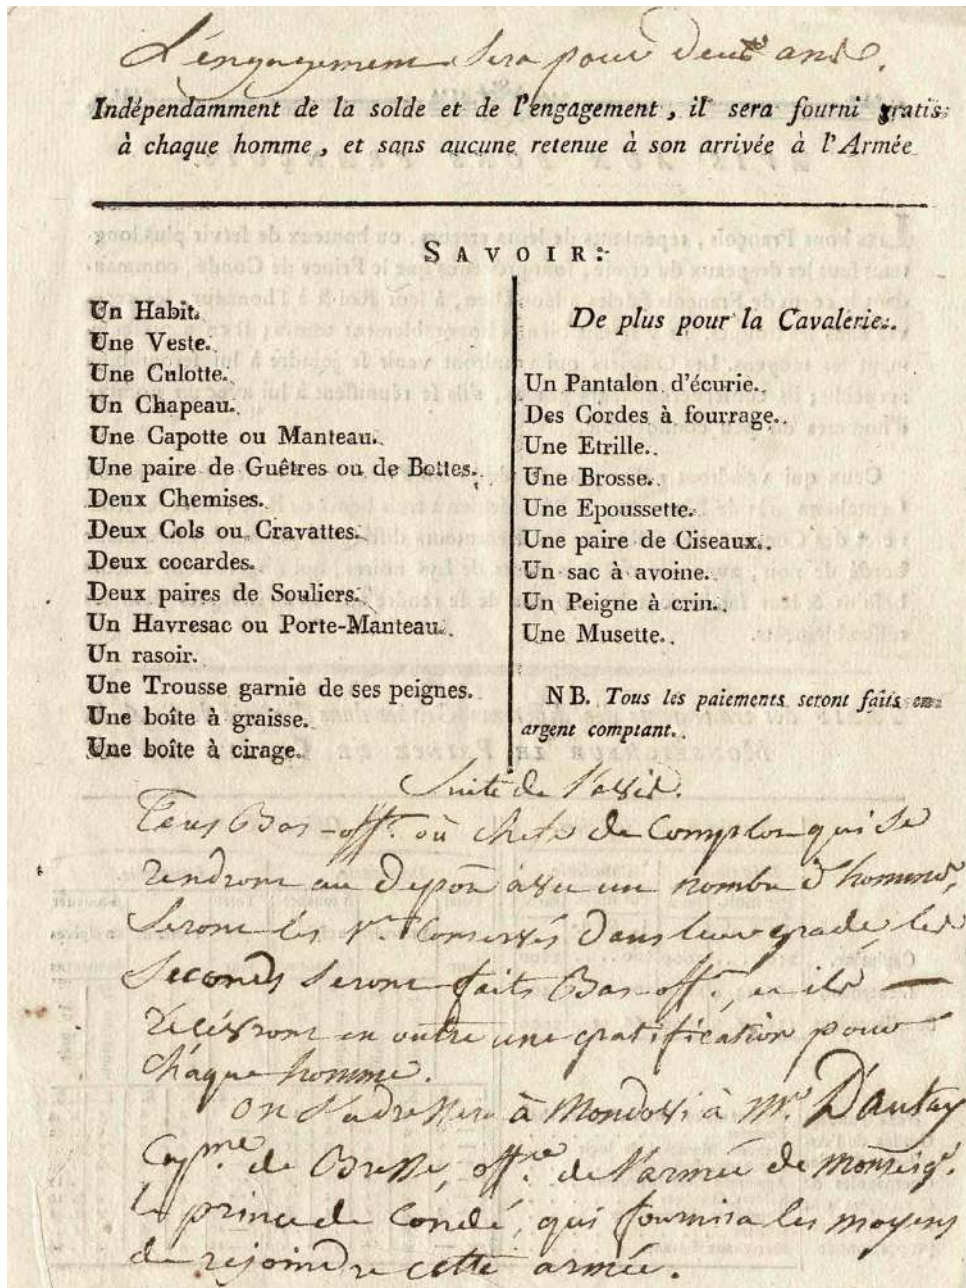 L'engagement sera pour deux ans.
Indépendamment de la solde et de l'engagement, il sera fourni gratis
à chaque homme, et sans aucune retenue à son arrivée à l'Armée
SAVOIR:
Un Habit.
Une Veste.
Une Culotte.
Un Chapeau.
Une Capotte ou Manteau.
Une paire de Guêtres ou de Bottes.
Deux Chemises.
Deux Cols ou Cravattes.
Deux cocardes.
Deux paires de Souliers.
Un Havresac ou Porte-Manteau.
Un rasoir.
Une Trousse garnie de ses peignes.
Une boîte à graisse.
Une boîte à cirage.
De plus pour la Cavalerie.
Un Pantalon d'écurie.
Des Cordes à fourrage.
Une Etrille.
Une Brosse.
Une Epoussette.
Une paire de Ciseaux.
Un sac à avoine.
Un Peigne à crin.
Une Musette.
NB. Tous les paiements seront faits en
argent comptant.
Suite de l'avis.
Tous Bas-offrs. où chefs de Complot qui se
rendront au Depôt avec un nombre d'hommes,
seront les 1ers Conservés dans leur grade, les
Seconds seront faits Bas-offrs, et ils
recevront en outre une gratification pour
chaque homme.
On s'adressera à Mondovi à Mr. D'autay
Capne. de Bresse, offier. de l'armée de Monseigr.
le prince de Condé, qui fournira les moyens
de rejoindre cette armée.